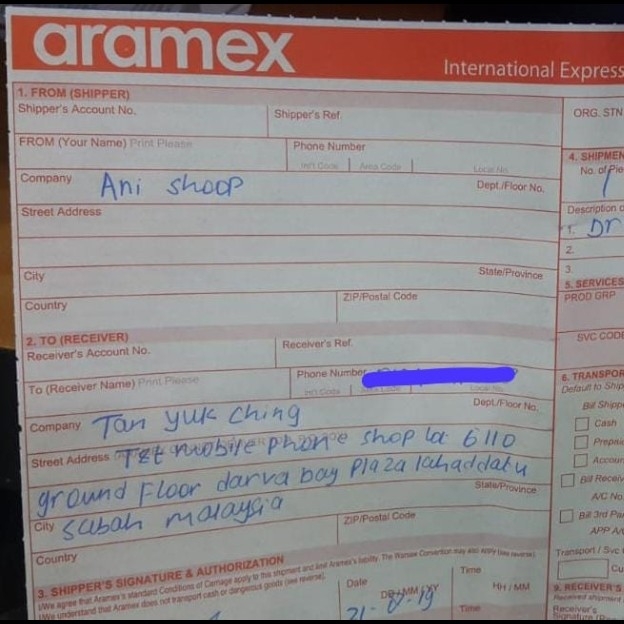 aramex
International Express
1. FROM (SHIPPER)
Shipper's Account No.
Shipper's Ref
ORG. STN
FROM (Your Name) Print Please
Phone Number
Int'l Code Area Code Local No.
4. SHIPMEN
No. of Pie
1
Company Ani shoop
Dept./Floor No.
Street Address
Description o
1. Dr
2.
3.
City
State/Province
5. SERVICES
Country
ZIP/Postal Code
PROD GRP
2. TO (RECEIVER)
Receiver's Account No.
Receiver's Ref.
SVC CODE
To (Receiver Name) Print Please
Phone Number
Int'l Code Local No.
6. TRANSPOR
Default to Ship
Company Tan yuk ching
Dept./Floor No.
Bill Shippe
Cash
Street Address TZt mobile phone shop la 6110
Prepaid
Accoun
ground Floor darva bay Plaza lahaddatu
State/Province
Bill Receiv
A/C No
City sabah malaysia
ZIP/Postal Code
Bill 3rd Par
APP A/
Country
Transport / Svc
Cu
3. SHIPPER'S SIGNATURE & AUTHORIZATION
I/We agree that Aramex's standard Conditions of Carriage apply to this shipment and limit Aramex's liability. The Warsaw Convention may also apply (see reverse).
I/We understand that Aramex does not transport cash or dangerous goods (see reverse).
Date
DD / MM / YY
Time
HH / MM
Time
9. RECEIVER'S
Received shipment
Receiver's
Signature